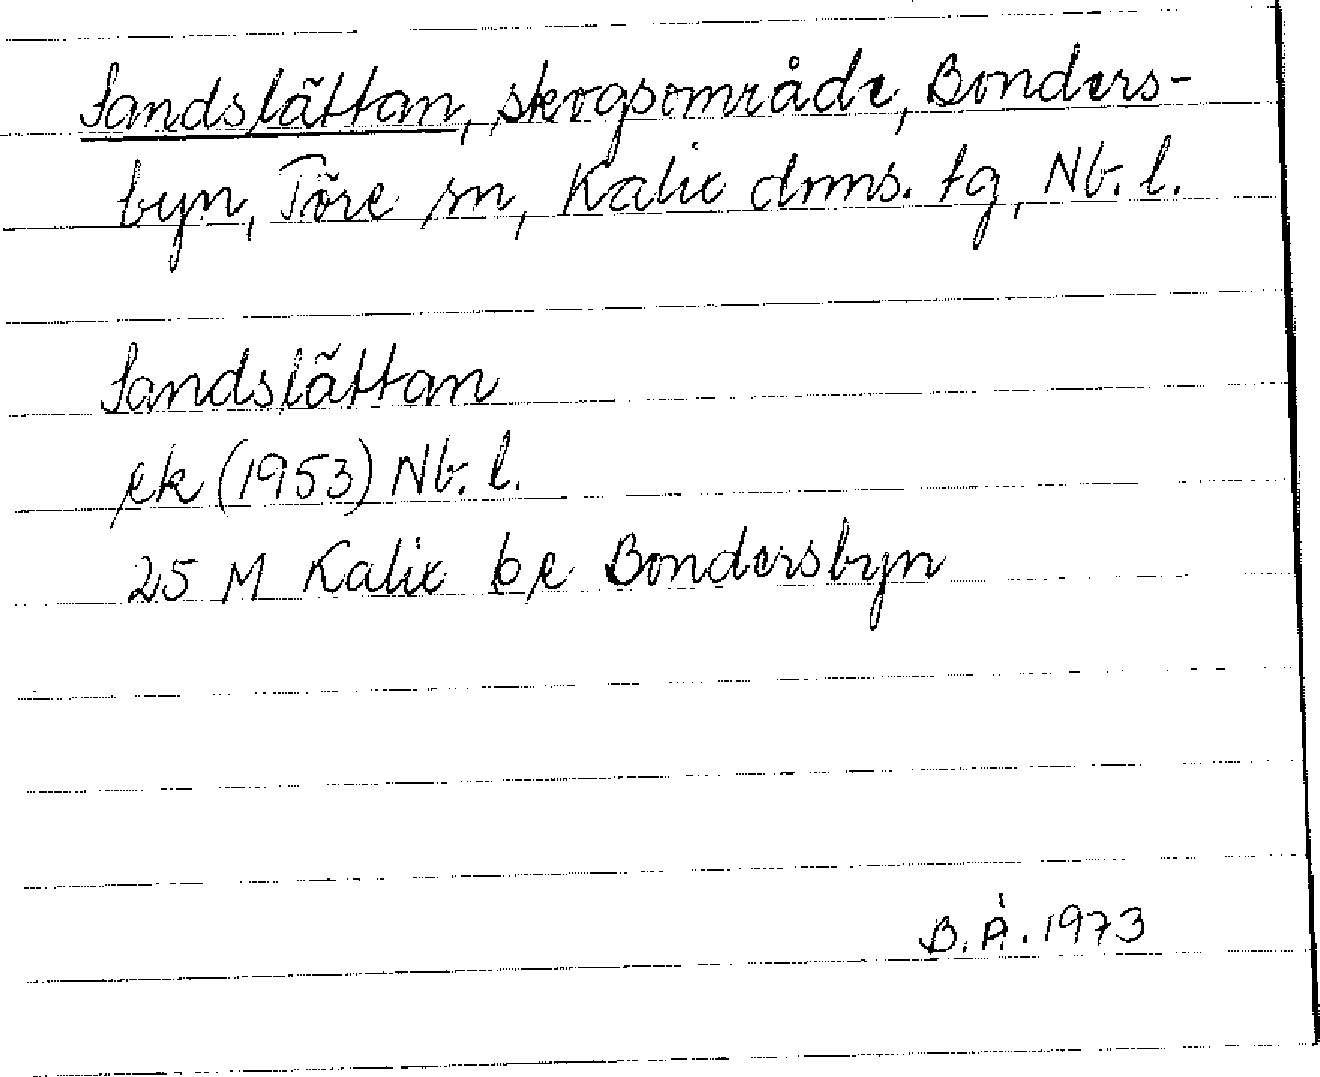 Sandslättan, skogsområde, Bonders-
byn, Töre sn, Kalix dms. tg, Nb. l.
Sandslättan
ek (1953) Nb. l.
25 M Kalix be Bondersbyn
B.Å. 1973